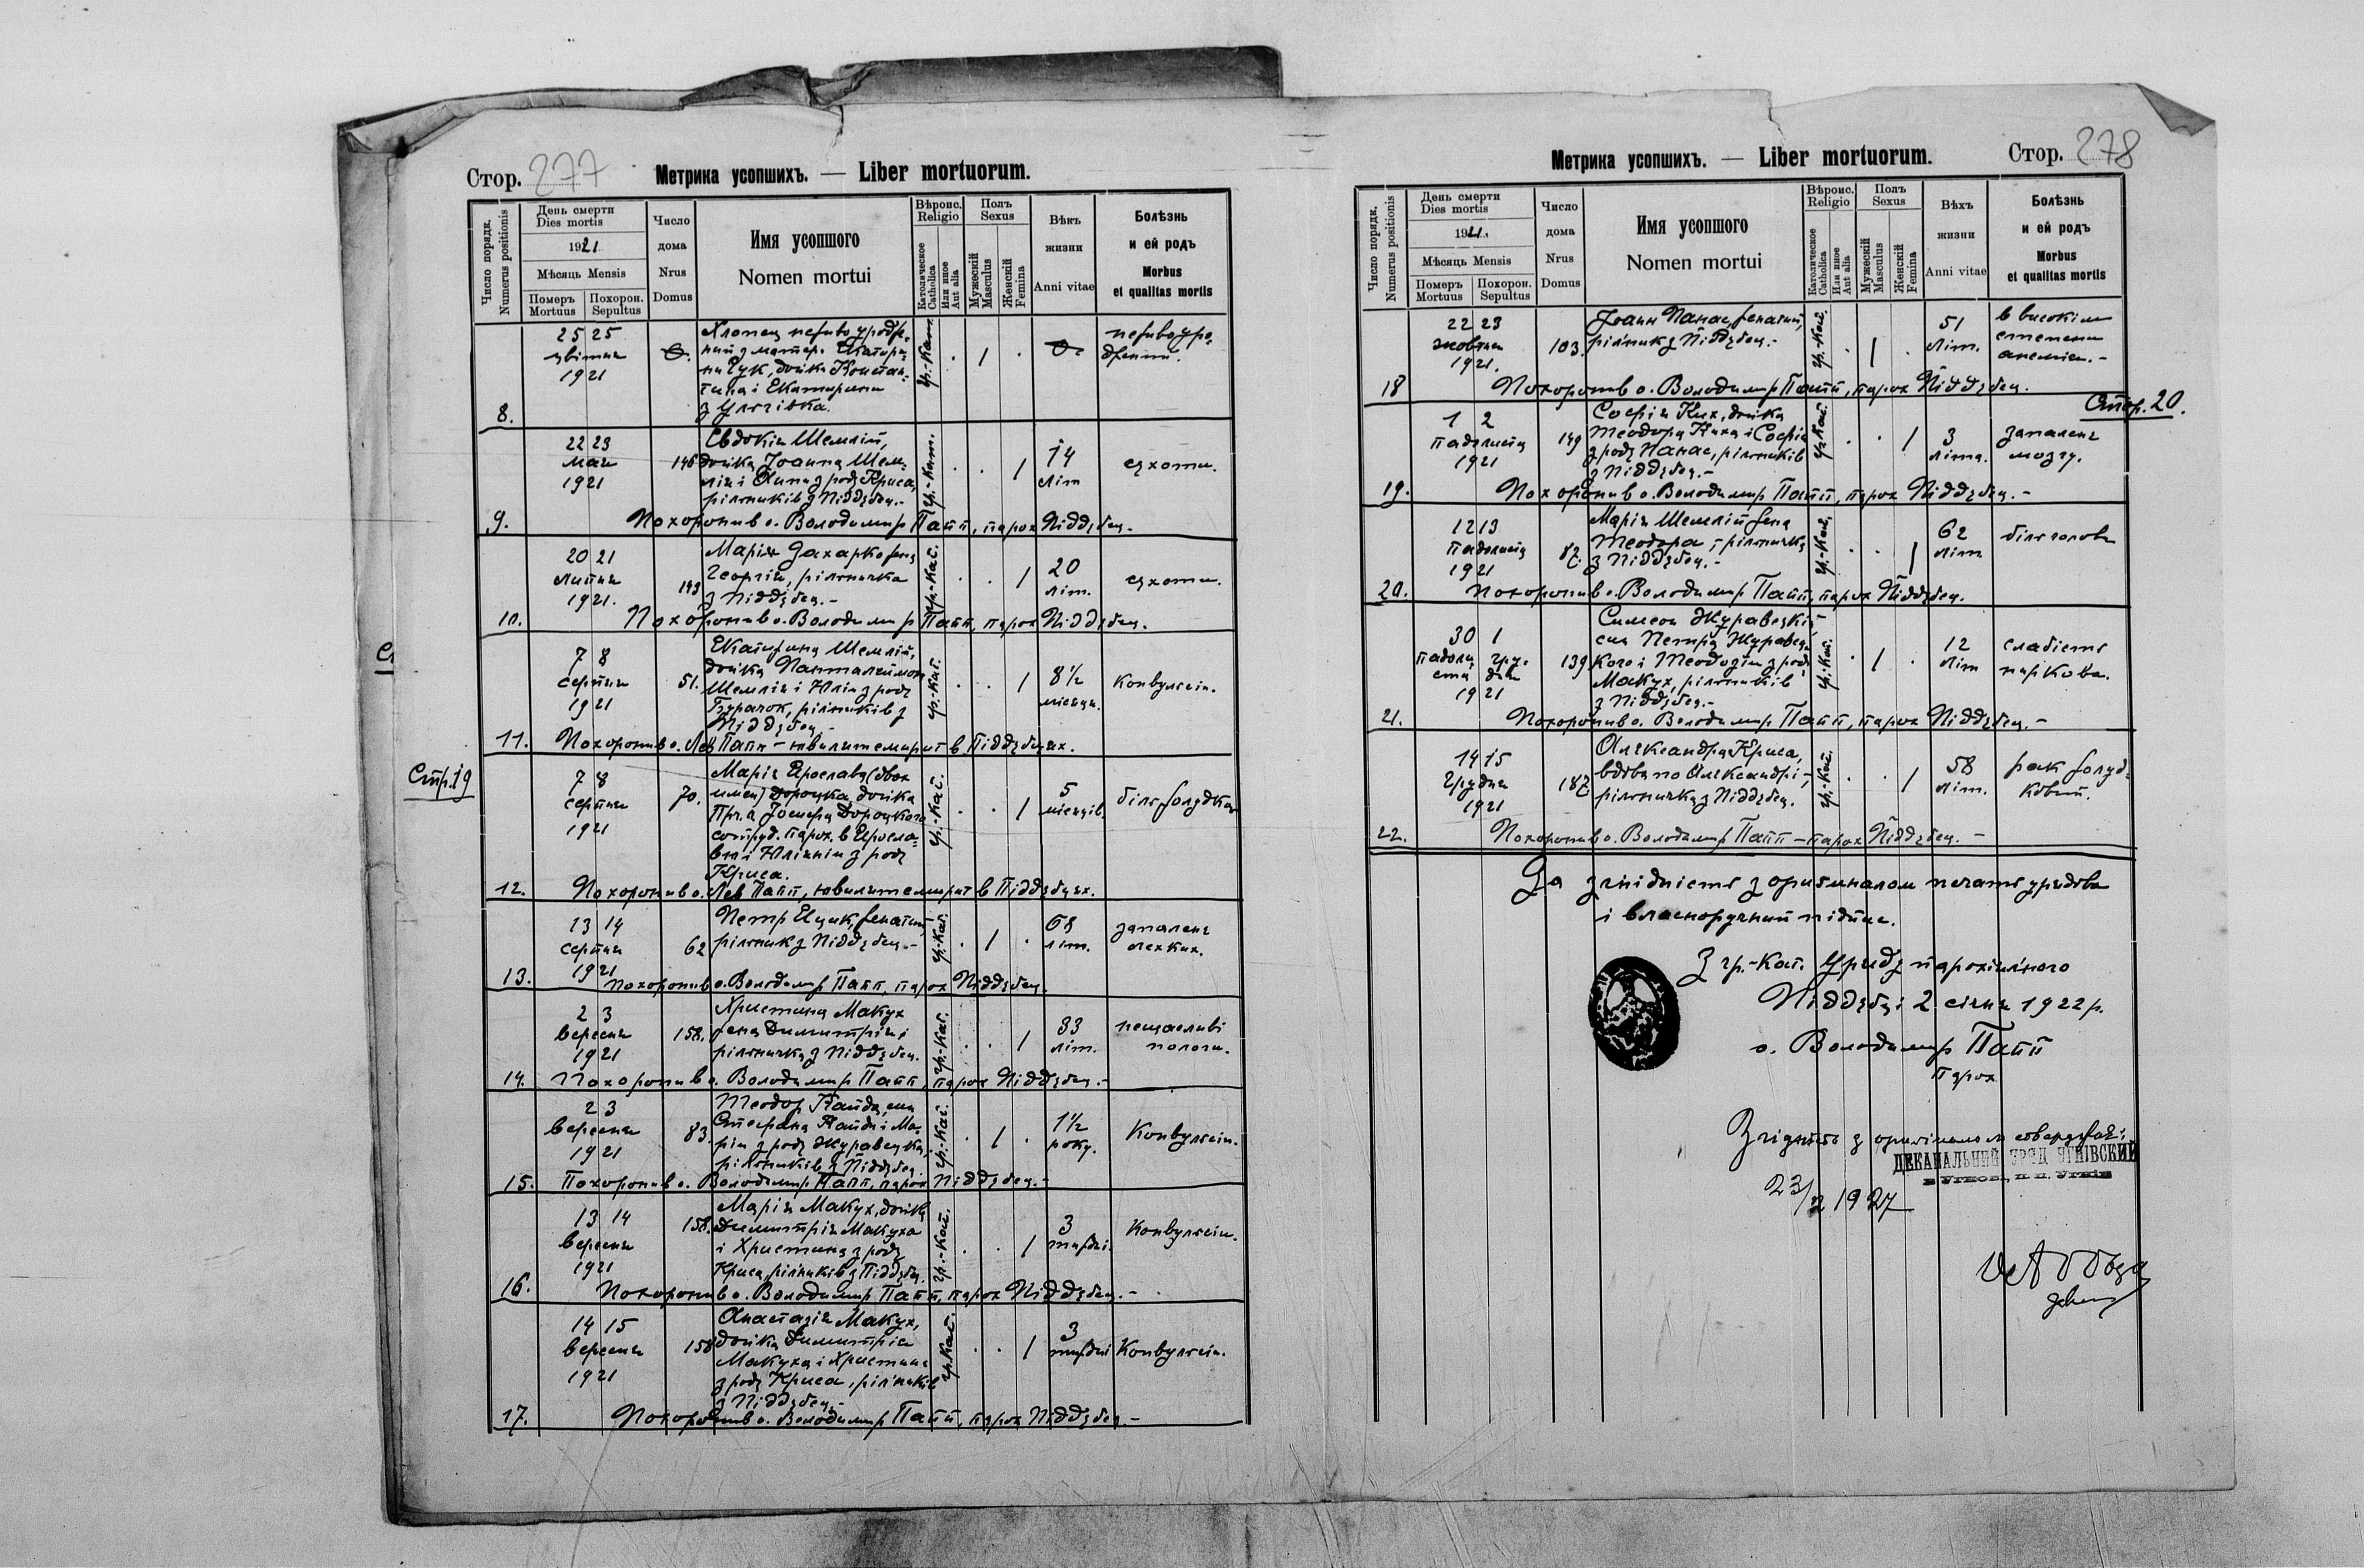 Стор. 277
Метрика усопшихъ. — Liber mortuorum.
Число порядк.
Numerus positionis
День смерти
Dies mortis
1921
Мѣсяць Mensis
Померъ
Mortuus
Похорон.
Sepultus
Число
дома
Nrus
Domus
Имя усопшого
Nomen mortui
Вѣроис.
Religio
Католическое
Catholica
Или иное
Aut alia
Полъ
Sexus
Мужескій
Masculus
Женскій
Femina
Вѣкъ
жизни
Anni vitae
Болѣзнь
и ей родъ
Morbus
et qualitas mortis
8.
25 25
цвітня
1921
0.
Хлопец неживо уродже-
ний з матери Екатери-
ни Гук, дочки Констан-
тина і Екатерини
з Угнівка.
гр.-Кат.
0.
неживоуро-
джений.
9.
22 23
мая
1921
146
Евдокія Шемлій,
дочка Іоанна Шем-
лія і Анни з роду Криса,
рільників з Піддубец.-
гр.-Кат.
14
літ
сухоти.
Похоронив о. Володимир Папп, парох Піддубец.-
10.
20 21
липня
1921.
149
Марія Захарко жена
Георгія, рільничка
з Піддубец.-
гр.-Кат.
20
літ.
сухоти.
Похоронив о. Володимир Папп, парох Піддубец.
11.
7 8
серпня
1921
51.
Екатерина Шемлій,
дочка Панталеймона
Шемлія і Юлії з роду
Бурачок, рільників з
Піддубец.-
гр.-Кат.
8½
місяця.
Конвульсія.
Похоронив о. Лев Папп - ювилят емерит в Піддубцях.
Стр. 19
12.
7 8
серпня
1921
70.
Марія Ярослава (двох
имен) Дороцка, дочка
Пр. о. Йосифа Дороцкого
сотруд. парох. в Яросла-
ві і Юлїянії з роду
Криса.
гр.-Кат.
5
місяців.
біль жолудка
Похоронив о. Лев Папп, ювилят емерит в Піддубцях.
13.
13 14
серпня
1921
62
Петр Яцик, женатий,
рільник з Піддубец.-
гр.-Кат.
68
літ.
запаленє
легких.
Похоронив о. Володимир Папп, парох Піддубец.
14.
2 3
вересня
1921
158.
Христина Макух
жена Димитрія,
рільничка з Піддубец.
гр.-Кат.
33
літ.
нещасливі
пологи.
Похоронив о. Володимир Папп, парох Піддубец.-
15.
2 3
вересня
1921
83.
Теодор Кайда, син
Стефана Кайди і Ма-
рії з роду Журавецка,
рільників з Піддубец.
гр.-Кат.
1½
року.
Конвульсія.
Похоронив о. Володимир Папп, парох Піддубец.-
16.
13 14
вересня
1921
158.
Марія Макух, дочка
Димитрія Макуха
і Христини з роду
Криса, рільників з Піддубец.
гр.-Кат.
3
тиждні.
Конвульсія.
Похоронив о. Володимир Папп, парох Піддубец.-
17.
14 15
вересня
1921
158
Анастазія Макух,
дочка Димитрія
Макуха і Христини
з роду Криса, рільників
з Піддубец.-
гр.Кат.
3
тиждні
Конвульсія.
Похоронив о. Володимир Папп, парох Піддубец.-
Метрика усопшихъ. — Liber mortuorum.
Стор. 278
Число порядк.
Numerus positionis
День смерти
Dies mortis
1921.
Мѣсяць Mensis
Померъ
Mortuus
Похорон.
Sepultus
Число
дома
Nrus
Domus
Имя усопшого
Nomen mortui
Вѣроис.
Religio
Католическое
Catholica
Или иное
Aut alia
Полъ
Sexus
Мужескій
Masculus
Женскій
Femina
Вѣхъ
жизни
Anni vitae
Болѣзнь
и ей родъ
Morbus
et qualitas mortis
18
22 23
жовтня
1921.
103.
Іоанн Панас, женатий,
рільник з Піддубец.-
гр.-Кат.
51
літ.
в високім
степени
анемія.-
Похоронив о. Володимир Папп, парох Піддубец.
Стор. 20.
19.
1 2
падолиста
1921
149
Софія Ких, дочка
Теодора Киха і Софії
з роду Панас, рільників
з Піддубец.-
гр.Кат.
3
літа.
запаленє
мозгу.
Похоронив о. Володимир Папп, парох Піддубец.-
20.
12 13
падолиста
1921
82.
Марія Шемлій жена
Теодора, рільничка
з Піддубец.-
гр.-Кат.
62
літ
біль голови
Похоронив о. Володимир Папп, парох Піддубец.
21.
30 1
падоли гру-
ста дня
1921
139
Симеон Журавецкий,
син Петра Журавец-
кого і Теодозії з роду
Макух, рільників
з Піддубец.-
гр.Кат.
12
літ
слабість
ниркова.
Похоронив о. Володимир Папп, парох Піддубец.-
22.
14 15
Грудня
1921
187
Александра Криса,
вдова по Александрі,
рільничка з Піддубец.
гр.-Кат.
58
літ.
рак жолуд-
ковий.
Похоронив о. Володимир Папп - парох Піддубец.-
За згідність з оригиналом печать урядова
і власноручний підпис.
З гр.-Кат. Уряду парохіяльного
Піддубці 2. січня 1922 р.
о. Володимир Папп
парох
Згідність з оригіналом стверджає:
ДЕКАНАЛЬНИЙ УРЯД УГНІВСКИЙ
1927